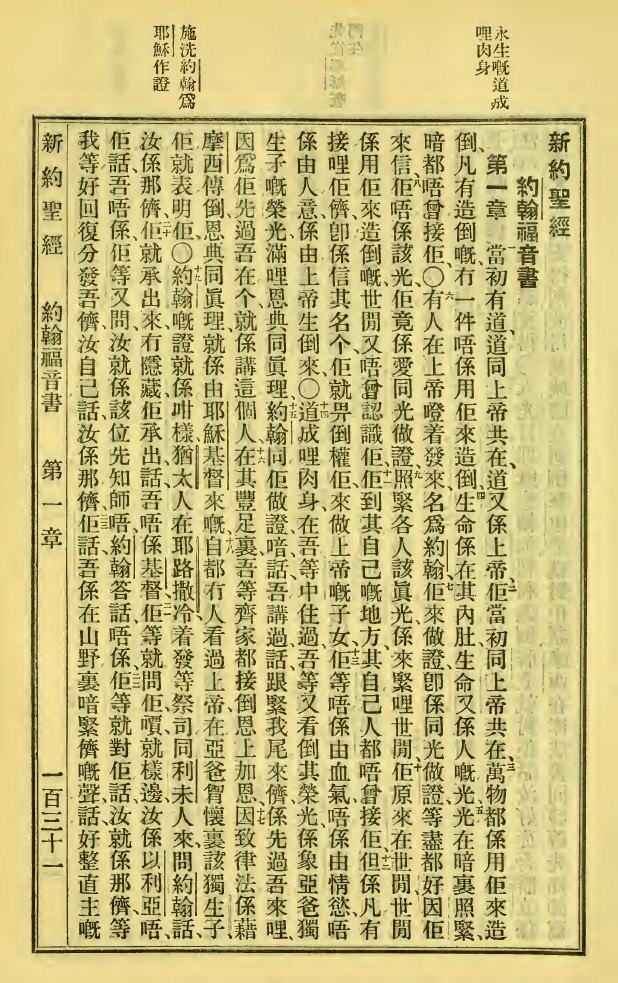 永生嘅道成
哩肉身
施洗約翰爲
耶穌作證
新約聖經
約翰福音書
第一章 一當初有道、道同上帝共在、道又係上帝、二佢當初同上帝共在、三萬物都係用佢來造
倒、凡有造倒嘅、冇一件唔係用佢來造倒、四生命係在其內肚、生命又係人嘅光、五光在暗裏照緊、
暗都唔曾接佢、〇六有人在上帝嗏着發來、名爲約翰、七佢來做證、卽係同光做證、等盡都好因佢
來信、八佢唔係該光、佢竟係愛同光做證、九照緊各人該眞光、係來緊哩世間、十佢原來在世間、世間
係用佢來造倒嘅、世間又唔曾認識佢、十一佢到其自己嘅地方、其自己人都唔曾接佢、十二但係凡有
接哩佢儕、卽係信其名个、佢就畀倒權佢來做上帝嘅子女、十三佢等唔係由血氣、唔係由情慾、唔
係由人意、係由上帝生倒來、〇十四道成哩肉身、在吾等中住過、吾等又看倒其榮光、係象亞爸獨
生子嘅榮光、滿哩恩典同眞理、十五約翰同佢做證、喑話、吾講過話、跟緊我尾來儕、係先過吾來哩、
因爲佢先過吾在个、就係講這個人、十六在其豐足裏、吾等齊家都接倒恩上加恩、十七因致律法係藉
摩西傳倒、恩典同眞理、就係由耶穌基督來嘅、十八自都冇人看過上帝、在亞爸胷懷裏該獨生子、
佢就表明佢、〇十九約翰嘅證、就係咁樣、猶太人在耶路撒冷、着發等祭司同利未人來、問約翰話、
汝係那儕、二十佢就承出來、冇隱藏、佢承出話、吾唔係基督、二一佢等就問佢、嘪就樣邊、汝係以利亞唔、
佢話、吾唔係、佢等又問、汝就係該位先知師唔、約翰答話、唔係、二二佢等就對佢話、汝就係那儕、等
我等好回復分發吾儕、汝自己話汝係那儕、二三佢話、吾係在山野裏喑緊儕嘅聲、話、好整直主嘅
新約聖經 約翰福音書 第一章 一百三十一